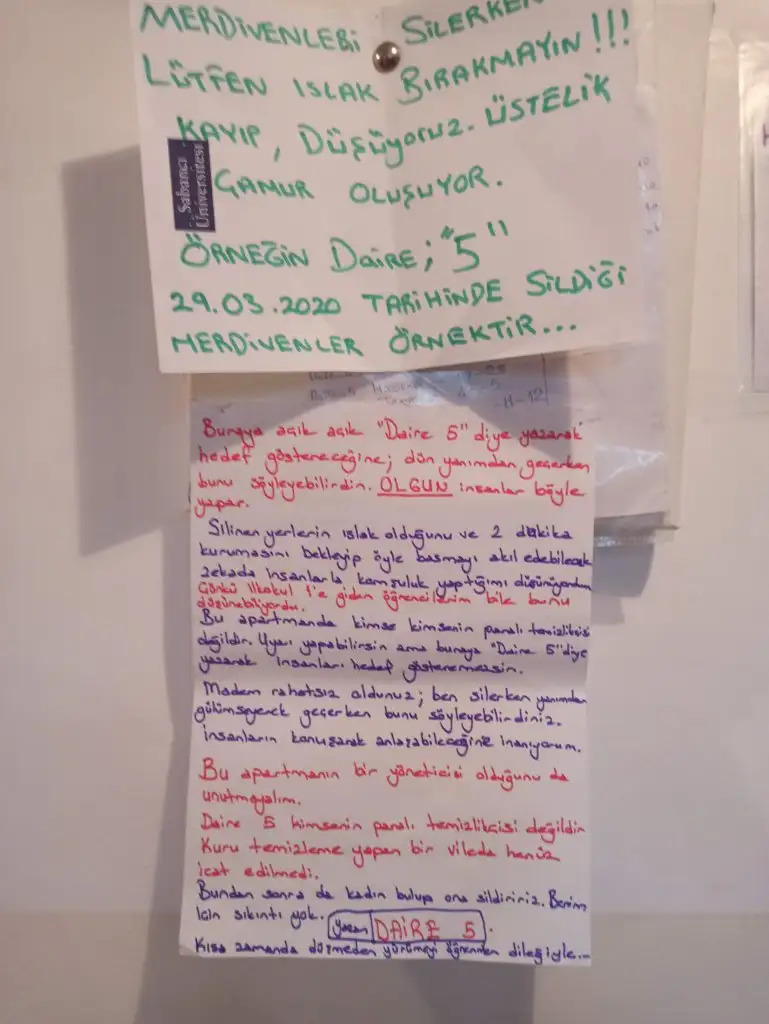 MERDİVENLERİ SİLERKEN
LÜTFEN ISLAK BIRAKMAYIN !!!
KAYIP, DÜŞÜYORUZ. ÜSTELİK
ÇAMUR OLUŞUYOR.
Sabancı
Üniversitesi
ÖRNEĞİN DAİRE; "5"
29.03.2020 TARİHİNDE SİLDİĞİ
MERDİVENLER ÖRNEKTİR...
Buraya açık açık "Daire 5" diye yazarak
hedef göstereceğine; dün yanımdan geçerken
bunu söyleyebilirdin. OLGUN insanlar böyle
yapar.
Silinen yerlerin ıslak olduğunu ve 2 dakika
kurumasını bekleyip öyle basmayı akıl edebilecek
zekada insanlarla komşuluk yaptığımı düşünüyordum
Çünkü İlkokul 1'e giden öğrencilerim bile bunu
düşünebiliyordu.
Bu apartmanda kimse kimsenin paralı temizlikçisi
değildir. Uyarı yapabilirsin ama buraya "Daire 5" diye
yazarak insanları hedef gösteremezsin.
Madem rahatsız oldunuz; ben silerken yanımdan
gülümseyerek geçerken bunu söyleyebilirdiniz.
insanların konuşarak anlaşabileceğine inanıyorum.
Bu apartmanın bir yöneticisi olduğunu da
unutmayalım.
Daire 5 kimsenin paralı temizlikçisi değildir
Kuru temizleme yapan bir vileda henüz
icat edilmedi.
Bundan sonra da kadın bulup ona sildiririz. Benim
için sıkıntı yok. Yazan DAİRE 5.
Kısa zamanda düşmeden yürümeyi öğrenmen dileğiyle...